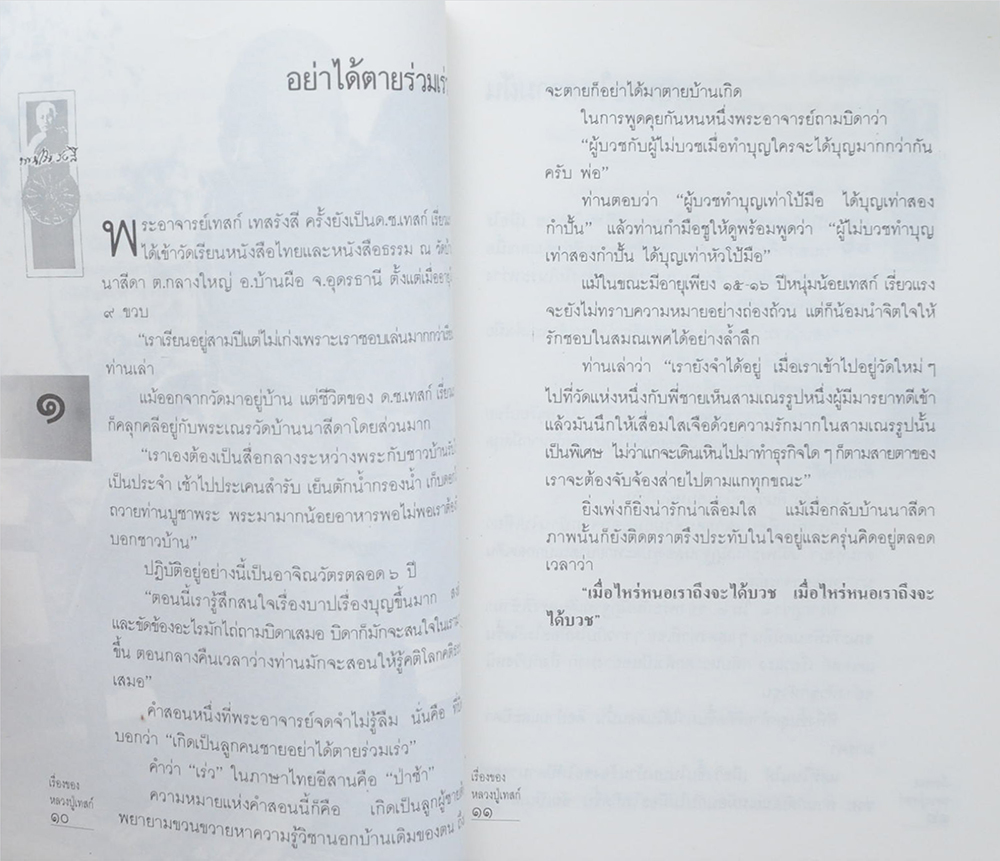 อย่าได้ตายร่วมเร่ว
เทสรังสี
พระอาจารย์เทสก์ เทสรังสี ครั้งยังเป็นด.ช.เทสก์ เรี่ยวแ
ได้เข้าวัดเรียนหนังสือไทยและหนังสือธรรม ณ วัดบ้า
นาสีดา ต.กลางใหญ่ อ.บ้านผือ จ.อุดรธานี ตั้งแต่เมื่ออายุไ
๙ ขวบ
"เราเรียนอยู่สามปีแต่ไม่เก่งเพราะเราชอบเล่นมากกว่าเรีย
ท่านเล่า
๑
แม้ออกจากวัดมาอยู่บ้าน แต่ชีวิตของ ด.ช.เทสก์ เรี่ยว
ก็คลุกคลีอยู่กับพระเณรวัดบ้านนาสีดาโดยส่วนมาก
"เราเองต้องเป็นสื่อกลางระหว่างพระกับชาวบ้าน
เป็นประจำ เช้าไปประเคนสำรับ เย็นตักน้ำกรองน้ำ เก็บดอกไ
ถวายท่านบูชาพระ พระมามากน้อยอาหารพอไม่พอเราต้อง
บอกชาวบ้าน"
ปฏิบัติอยู่อย่างนี้เป็นอาจิณวัตรตลอด ๖ ปี
"ตอนนี้เรารู้สึกสนใจเรื่องบาปเรื่องบุญขึ้นมาก
และขัดข้องอะไรมักไถ่ถามบิดาเสมอ บิดาก็มักจะสนใจในเรา
ขึ้น ตอนกลางคืนเวลาว่างท่านมักจะสอนให้รู้คติโลกคติธ
เสมอ"
คำสอนหนึ่งที่พระอาจารย์จดจำไม่รู้ลืม นั่นคือ ที่
บอกว่า "เกิดเป็นลูกคนชายอย่าได้ตายร่วมเร่ว"
คำว่า "เร่ว" ในภาษาไทยอีสานคือ "ป่าช้า"
ความหมายแห่งคำสอนนี้ก็คือ เกิดเป็นลูกผู้ชาย
พยายามขวนขวายหาความรู้วิชานอกบ้านเดิมของตน ถึง
เรื่องของ
หลวงปู่เทสก์
๑๐
จะตายก็อย่าได้มาตายบ้านเกิด
ในการพูดคุยกันหนหนึ่งพระอาจารย์ถามบิดาว่า
"ผู้บวชกับผู้ไม่บวชเมื่อทำบุญใครจะได้บุญมากกว่ากัน
ครับ พ่อ"
ท่านตอบว่า "ผู้บวชทำบุญเท่าโป้มือ ได้บุญเท่าสอง
กำปั้น" แล้วท่านกำมือชูให้ดูพร้อมพูดว่า "ผู้ไม่บวชทำบุญ
เท่าสองกำปั้น ได้บุญเท่าหัวโป้มือ"
แม้ในขณะมีอายุเพียง ๑๕-๑๖ ปีหนุ่มน้อยเทสก์ เรี่ยวแรง
จะยังไม่ทราบความหมายอย่างถ่องถ้วน แต่ก็น้อมนำจิตใจให้
รักชอบในสมณเพศได้อย่างล้ำลึก
ท่านเล่าว่า "เรายังจำได้อยู่ เมื่อเราเข้าไปอยู่วัดใหม่ ๆ
ไปที่วัดแห่งหนึ่งกับพี่ชายเห็นสามเณรรูปหนึ่งผู้มีมารยาทดีเข้า
แล้วมันนึกให้เลื่อมใสเจือด้วยความรักมากในสามเณรรูปนั้น
เป็นพิเศษ ไม่ว่าแกจะเดินเหินไปมาทำธุรกิจใด ๆ ก็ตามสายตาของ
เราจะต้องจับจ้องส่ายไปตามแกทุกขณะ"
ยิ่งเพ่งก็ยิ่งน่ารักน่าเลื่อมใส แม้เมื่อกลับบ้านนาสีดา
ภาพนั้นก็ยังติดตราตรึงประทับในใจอยู่และครุ่นคิดอยู่ตลอด
เวลาว่า
"เมื่อไหร่หนอเราถึงจะได้บวช เมื่อไหร่หนอเราถึงจะ
ได้บวช"
เรื่องของ
หลวงปู่เทสก์
๑๑